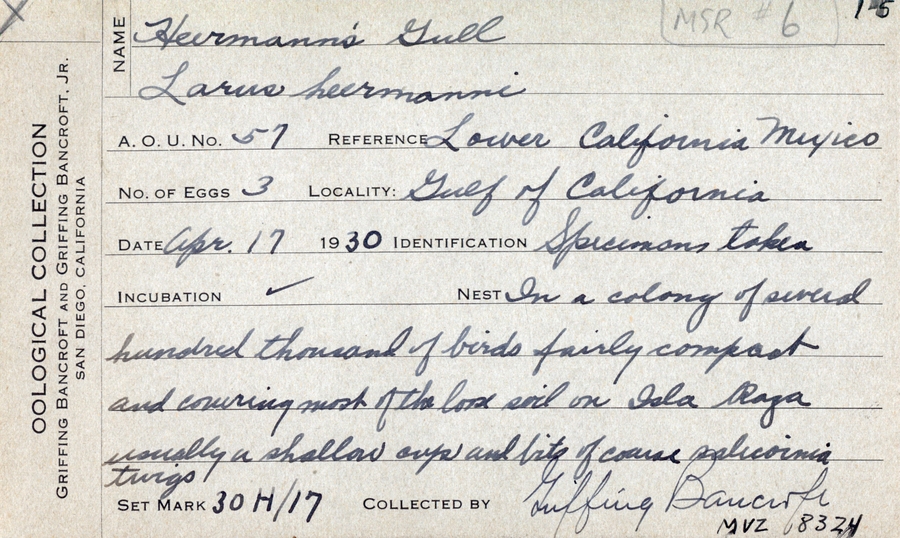 MSR #6
15
OOLOGICAL COLLECTION
GRIFFING BANCROFT AND GRIFFING BANCROFT, JR.
SAN DIEGO, CALIFORNIA
NAME Heermann's Gull
Larus heermanni
A. O. U. NO. 57 REFERENCE Lower California Mexico
NO. OF EGGS 3 LOCALITY: Gulf of California
DATE Apr. 17 1930 IDENTIFICATION Specimens taken
INCUBATION ✓ NEST In a colony of several
hundred thousand of birds fairly compact
and covering most of the loose soil on Isla Raza
usually a shallow cup and bits of coarse salicornia
twigs
SET MARK 30 H/17 COLLECTED BY Griffing Bancroft
MVZ 8324